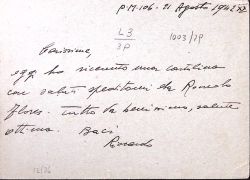 P.M. 106 - 21 Agosto 1942 XX
L3
3P
1003/3P
Carissima,
oggi ho ricevuto una cartolina
con saluti speditami da Romolo
Flores. Tutto va benissimo, salute
ottima. Baci
Riccardo